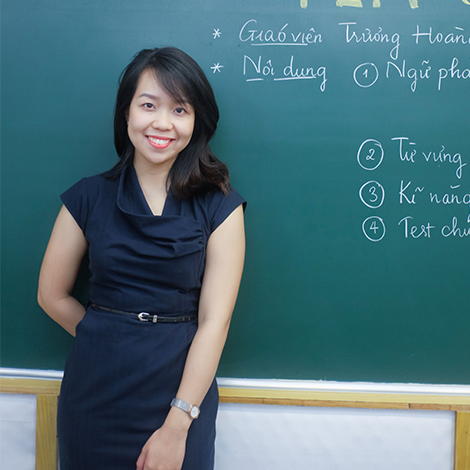 * Giáo viên Trương Hoàn
* Nội dung ① Ngữ pha
② Từ vựng
③ Kĩ năng
④ Test chu